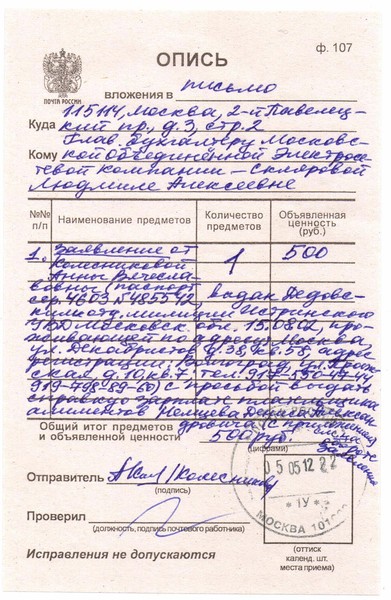 ф. 107
ПОЧТА РОССИИ
ОПИСЬ
вложения в письмо
115114, Москва, 2-й Павелец-
Куда кий пр., д.3, стр.2
Глав. бухгалтеру Московс-
Кому кой Объединённой Электросе-
тевой компании – Скляровой
Людмиле Алексеевне
№№ п/п Наименование предметов Количество предметов Объявленная ценность (руб.)
1. Заявление от 1 500
Колесниковой
Анны Вячесла-
вовны (паспорт
сер. 4603 № 485542, выдан Дедовс-
ким отд. милиции Истринского
УВД Московск. обл. 15.08.02, про-
живающей по адресу: Москва,
ул. Декабристов, д.38, кв.58, адрес
регистрации:
д.10, кв.7, тел.
919-798-89-60) с просьбой создать
справку о зарплате плательщика
алиментов Немцева Дениса Алексан-
дровича (с приложением
Общий итог предметов
и объявленной ценности 500 руб.
(цифрами)
заявления
Отправитель /Колесникова
(подпись)
Проверил
(должность, подпись почтового работника)
Исправления не допускаются
05 05 12 22
* IУ *
МОСКВА
(оттиск
календ. шт.
места приема)